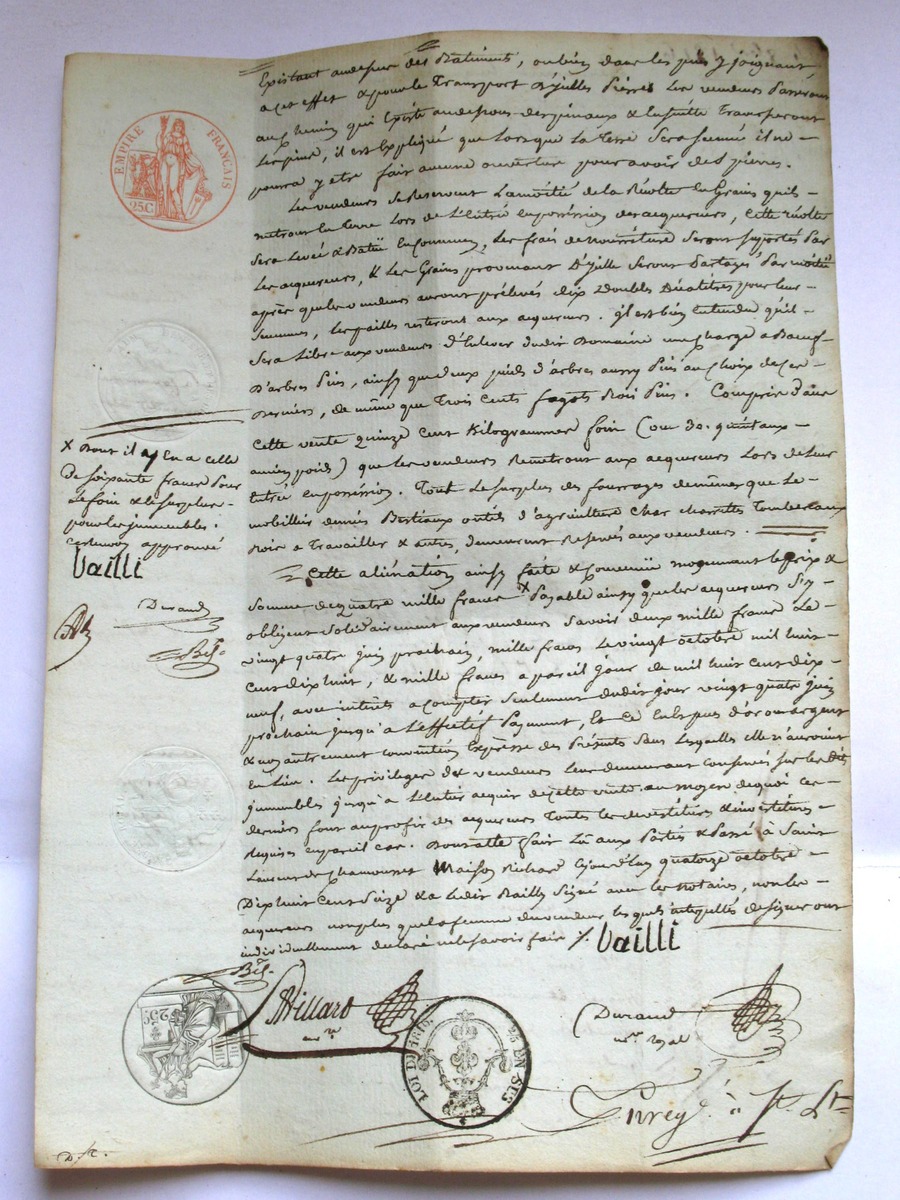 EMPIRE FRANÇAIS
25C
Existant audessus des Batiments, oubien dans les puits y joignant,
a cet effet & pour le transport d'ycelles Pierres les vendeurs Passeront
au chemin qui Existe audessous des pinaux & Ensuite Traverseront
Les pins, il est Expliqué que Lorsque La Terre Sera Semée il ne
pourra y etre fait aucune ouverture pour avoir des pierres.
Les vendeurs se Reservent La moitié de la Récolte En Grains quils
mettront En terre Lors de L'Entrée En possession des acquereurs, Cette récolte
Sera Levée & Battue En Commun, Les frais de nourriture Seront suportés Par
Les acquereurs, & Les Grains provenant D'ycelle Seront Partagés Par moitié
après que les vendeurs auront prélevés dix Doubles Décalitres pour leur
Semences, Les pailles resteront aux acquereurs. il est bien Entendu qu'il
Sera Libre aux vendeurs d'Enlever dudit Domaine une Charge a Bœuf
D'arbres Pins, ainsy que deux pieds d'arbres aussy Pins au Choix de ces
Derniers, de même que Trois Cents fagots Bois Pins. Comprise dans
Cette vente quinze Cent Kilogrammes foin (ou 30. quintaux
ancien poids) que les vendeurs Remettront aux acquereurs Lors de Leur
Entrée En possession. Tout Le Surplus des fourrages de même que Le
mobillier denrées Bestiaux outils d'agriculture Char charrettes Tombereaux
Bois a Travailler & autres, demeurent Reservés aux vendeurs.
Cette aliénation ainsy faite & Convenüe moyennant le prix &
Somme de quatre mille francs x Payable ainsy que les acquereurs S'y
obligent Solidairement aux vendeurs Savoir deux mille francs Le
vingt quatre juin prochain, mille francs Le vingt octobre mil huit
Cent dix huit, & mille francs a pareil jour de mil huit cent dix
neuf, avec intérêts a compter Seulement dudit jour vingt quatre juin
prochain jusqu'a L'Effectif Payement, Et Ce En Espèces d'or ou argent
& non autrement convention Expresse des Présentes Sans Lesquelles elle n'auroient
Eu Lieu. Les privilèges des vendeurs Leur demeurant conservés sur les dits
jmmeubles jusqu'a L'Entier acquit de cette vente. au moyen de quoi ces
derniers font au profit des acquereurs Toutes les devestitures & investitures
Requises en pareil cas. Dont acte fait Lû aux Parties & Passé à Saint
Laurent de Chamousset Maison Richard Cejourd'huy quatorze octobre
Dix huit Cent Seize & a Ledit Vailly Signé avec les notaires, non les
acquereurs non plus que la femme du vendeur Lesquels interpellés de Signer ont
individuellement declaré ne le Savoir faire ./. Vailli
x Dont il y En a celle
De Soixante francs pour
Le foin & le surplus
pour les jmmeubles.
Ce renvoi approuvé
Vailli
Durand
Villard
Durand
nre Royal
25C
LOI DE 1816.
25 EN SUS
à St. Lt